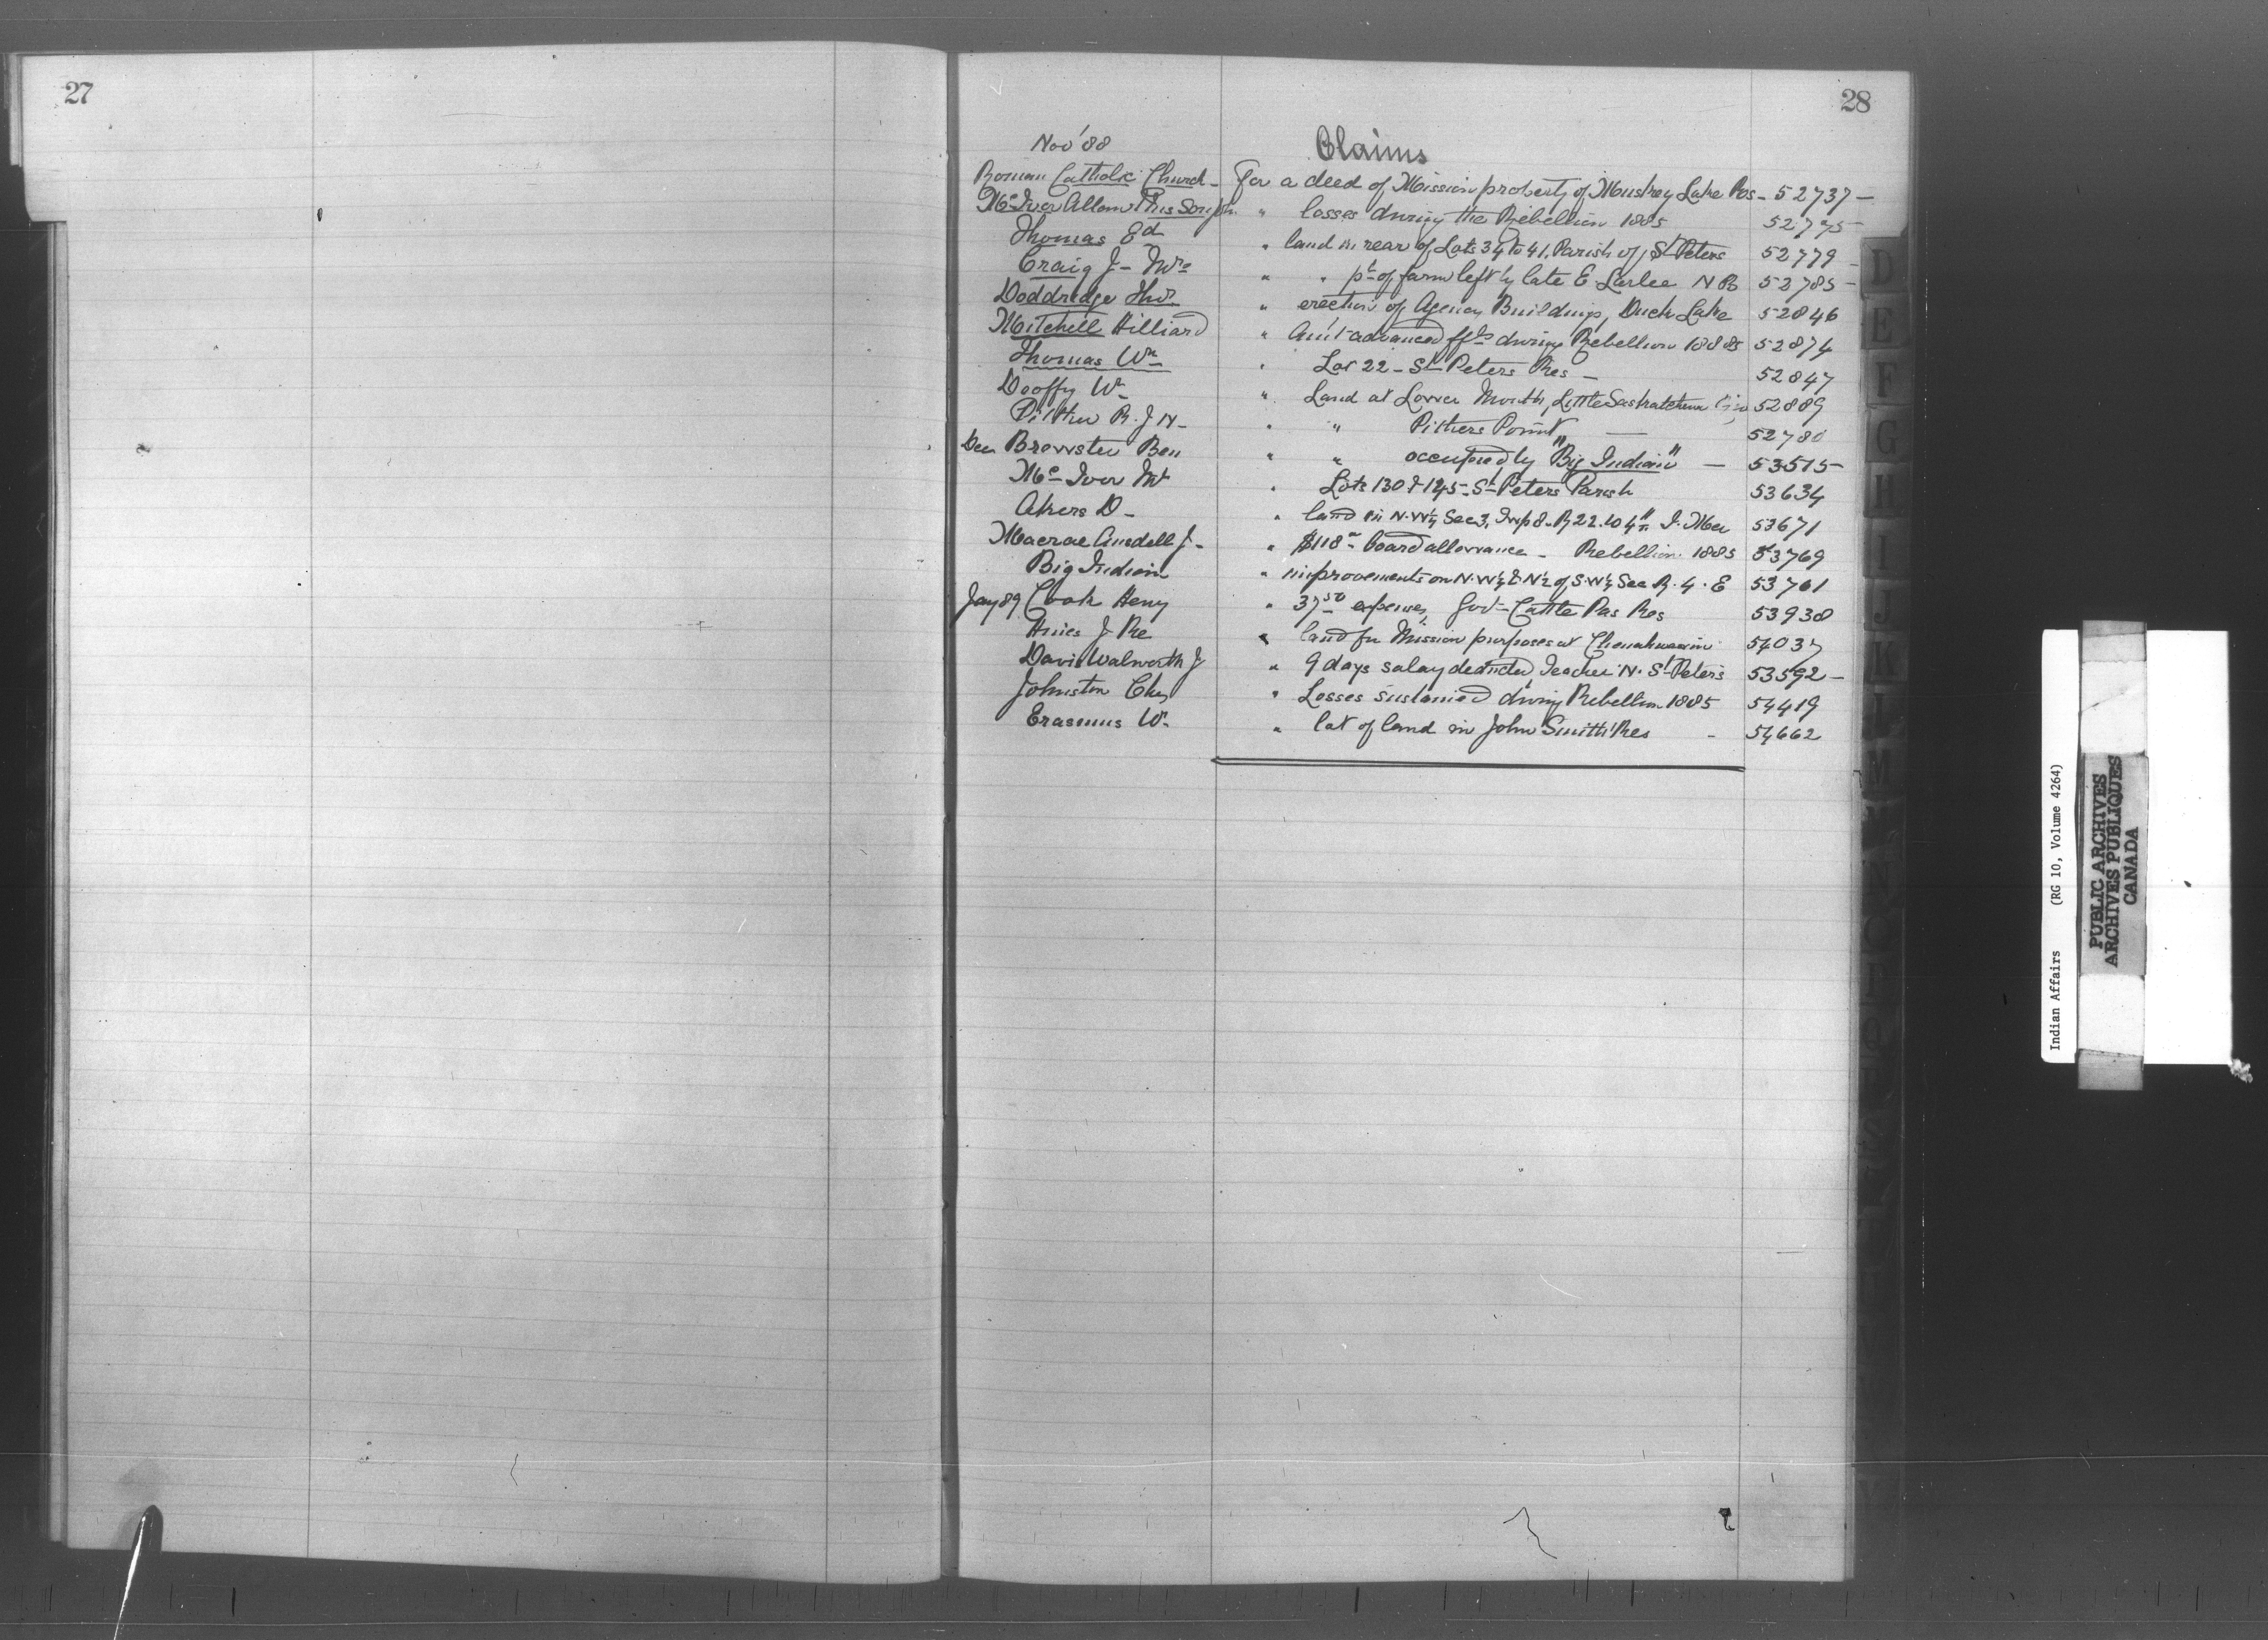 27
28
Nov '88
Claims
Roman Catholic Church - For a deed of Mission property of Muskeg Lake Res - 52737 -
McIver Allan & Thos " losses during the Rebellion 1885 52775
Thomas Ed " land in rear of Lots 34 to 41, Parish of St Peters 52779 -
Craig J - Mrs " " pt of farm left by late E Larlee N B 52785 -
Doddridge Thos " erection of Agency Buildings, Duck Lake 52846
Mitchell Hilliard " Am't advanced during Rebellion 1885 52874
Thomas Wm " Lot 22 - St Peters Res - 52847
Wm " Land at Lower Mouth, Little Saskatchewan 52889
Pither R. J N - " " Pithers Point - 52780
Dec Brewster Ben " " occupied by "Big Indian" - 53515
Mc Ivor Mt " Lots 130 & 145 - St Peters Parish 53634
Akers D - " land in N.W¼ Sec 3, Twp 8 - R 22. W 4th I. Mer 53671
Macrae Ansdell J - " $118 - board allowance - Rebellion 1885 53769
Big Indian " improvements on N.W¼ & N½ of S.W¼ Sec R. 4. E 53761
Jany 89 Cook Henry " 37 50 expenses, Govt Cattle Pas Res 53938
Hines J Re " land for Mission purposes at 54037
Davis Walworth J " 9 days salary deducted, Teacher N. St Peters 53592 -
Johnston Chas " Losses sustained during Rebellion 1885 54419
Erasmus Wm " lot of land in John Smith's Res - 54662
D
E
F
G
H
I
J
K
L
M
Indian Affairs (RG 10, Volume 4264)
PUBLIC ARCHIVES
ARCHIVES PUBLIQUES
CANADA